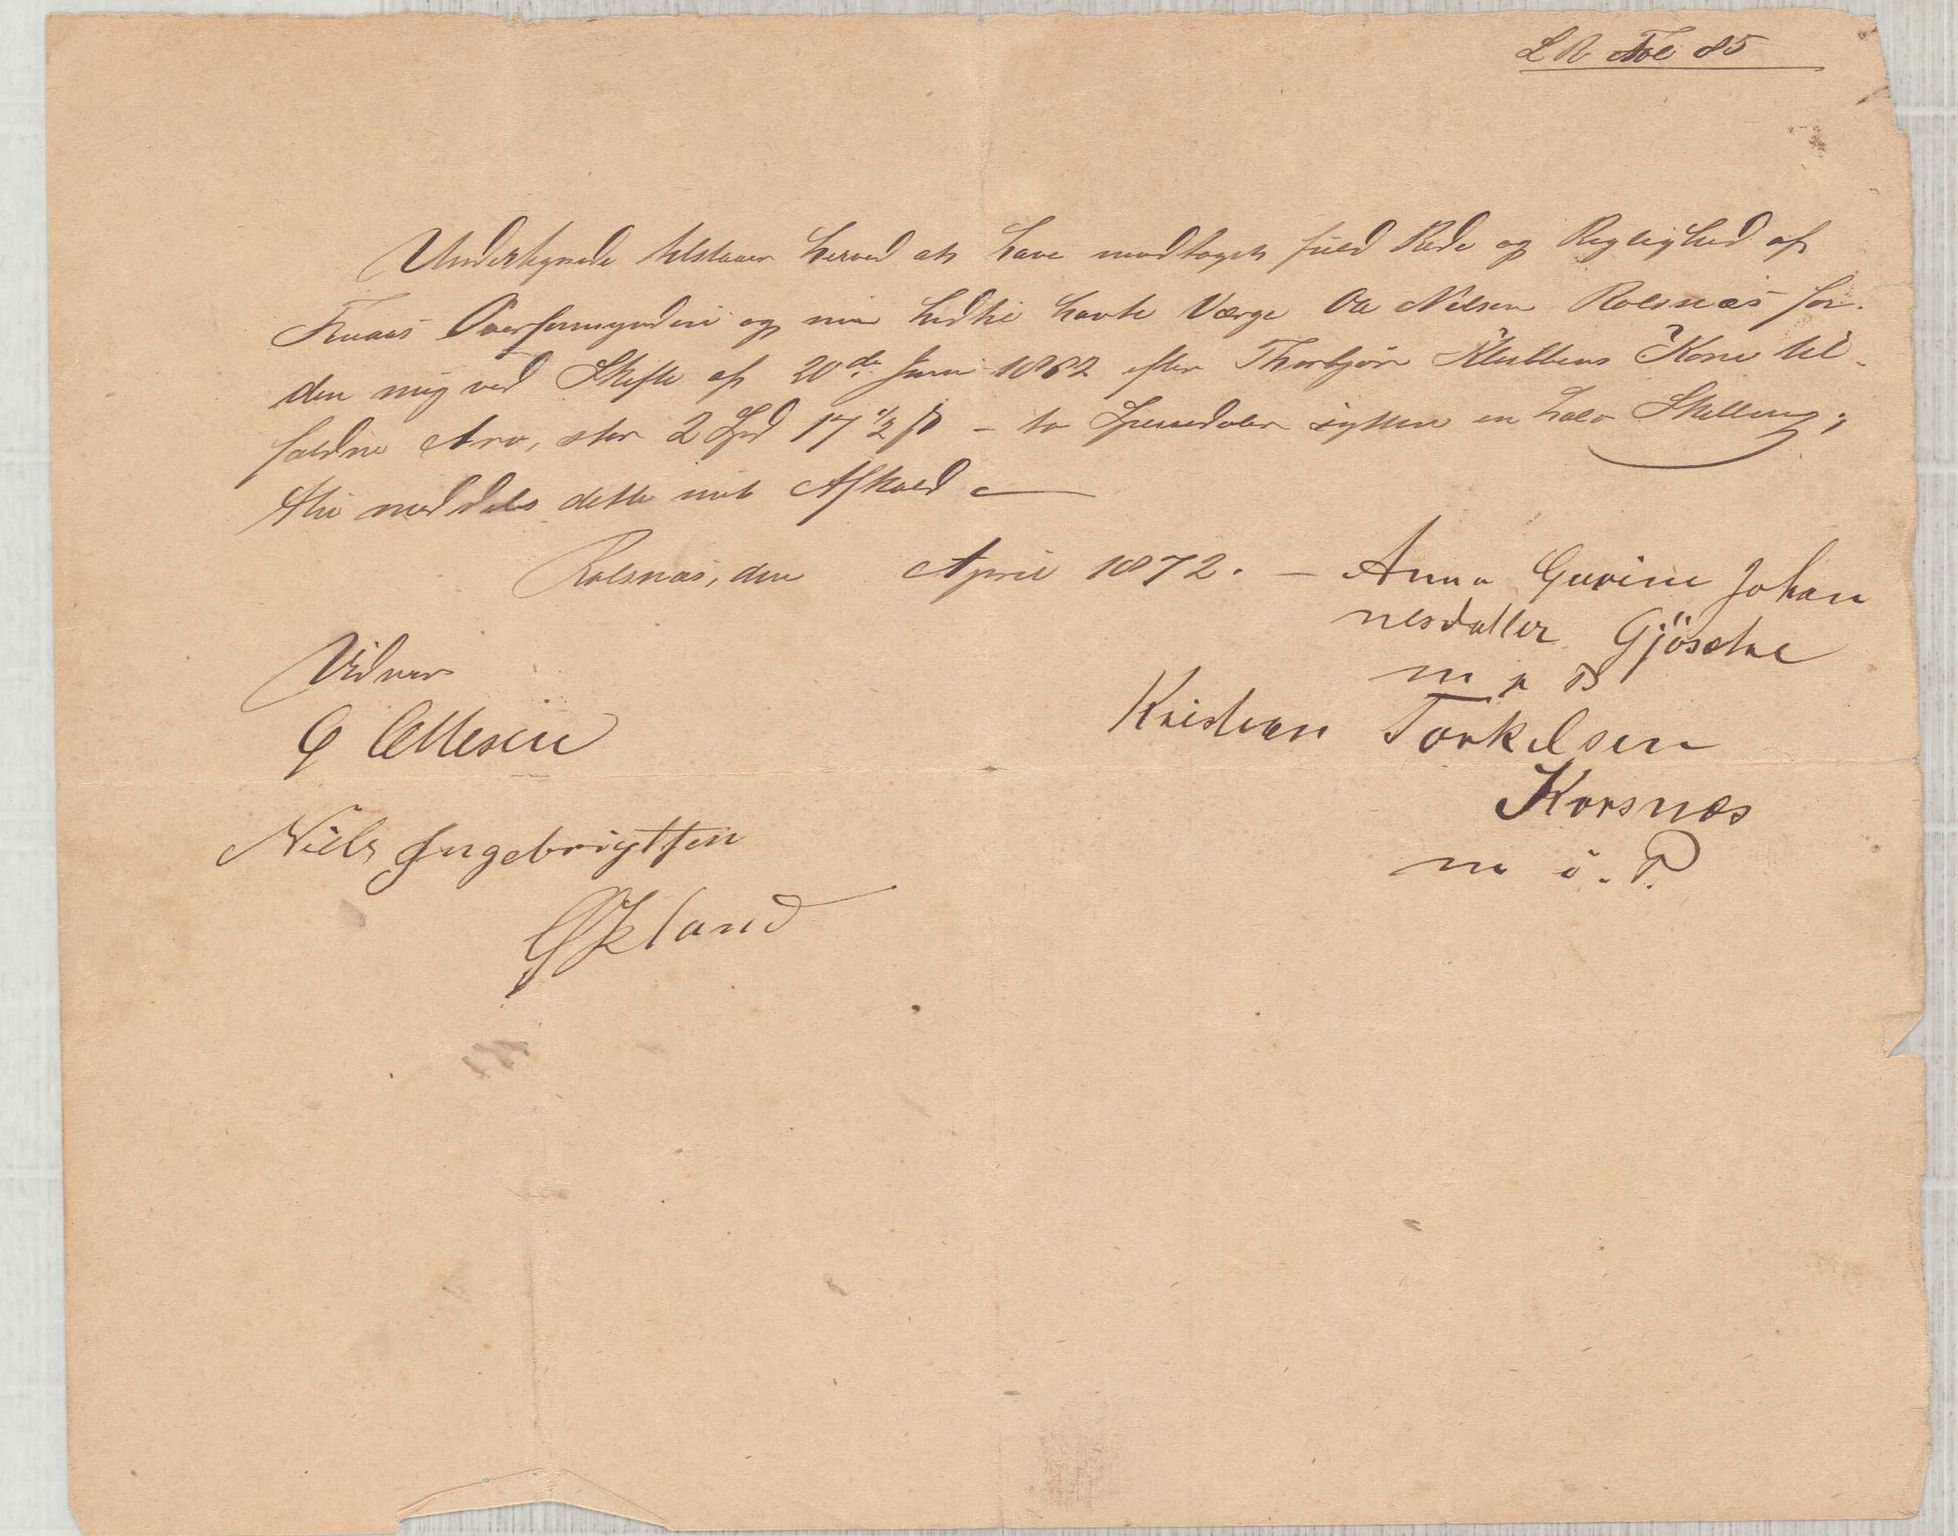 L R Fol 85
Undertegnede tilstaaer herved at have modtaget fuld Rede og Rigtighed af
Fuaas Overformynderi og min hidtil havte Værge Ole Nilsen Rolsnæs for
den mig ved Skifte af 20de Juni 1862 efter Thorbjør Kone til-
faldne Arv, stor 2 Spd 17 1/2 ß - to Speciedaler sytten en halv Skilling;
thi meddeles dette mit Afkald
Rolsnæs, den April 1872. - Anna Gurine Johan
nesdatter Gjösdal
m p P
Vidner
Kristian Torkelsen
G Ottesen
Korsnæs
Niels Ingebrigtsen
m i. P.